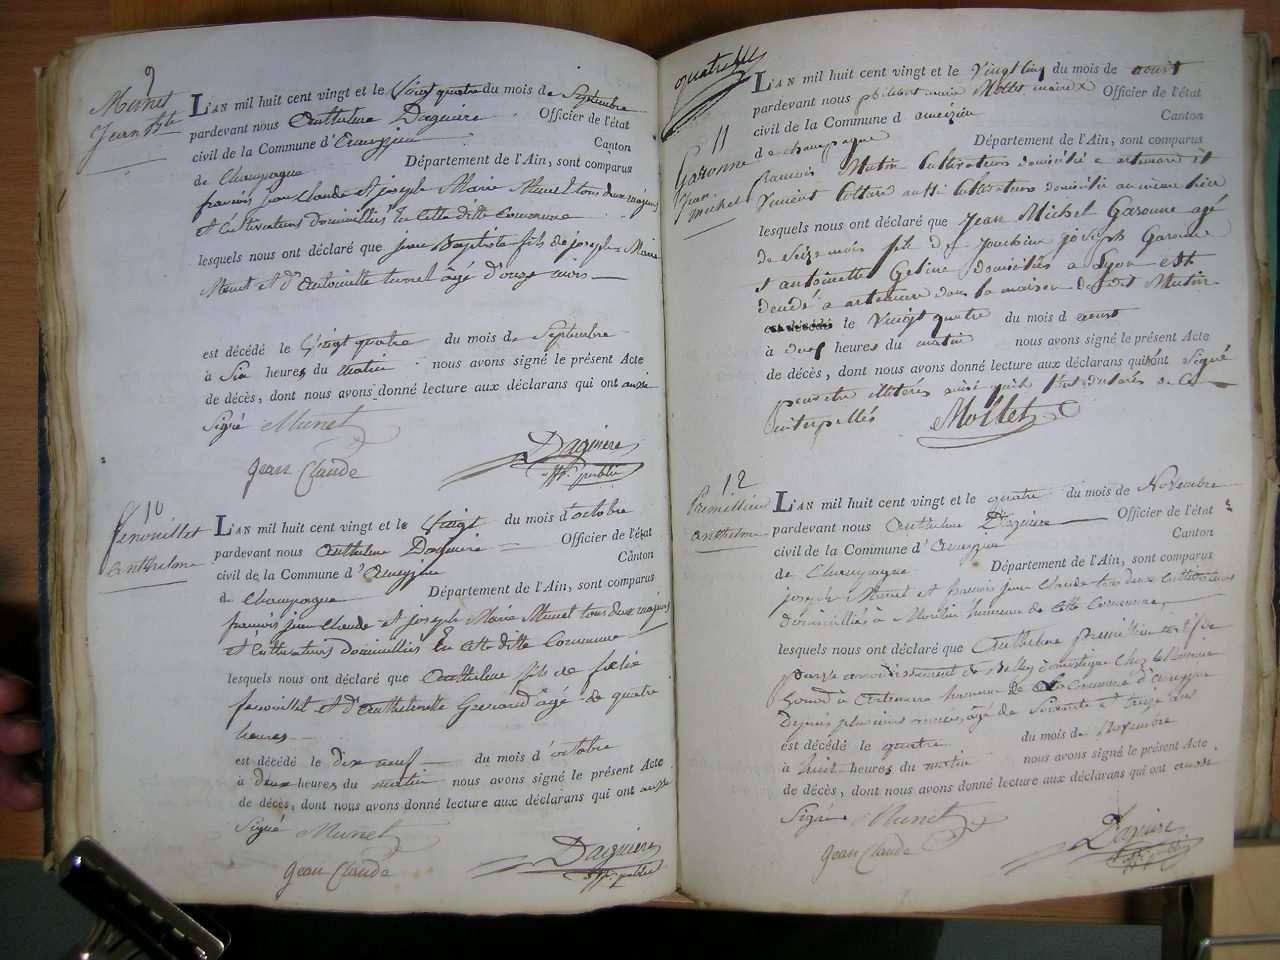 9
Munet
Jean Bte
L'AN mil huit cent vingt et le Vingt quatre du mois de Septembre
pardevant nous Anthelme Daguiere Officier de l'état
civil de la Commune d'Ameyzieu Canton
de Champagne Département de l'Ain, sont comparus
françois jean Claude et joseph Marie Munet tous deux majeurs
et Cultivateurs Domiciliés En Cette ditte Commune
lesquels nous ont déclaré que jean Baptiste fils de joseph Marie
Munet et d'Antoinette âgé d'onze mois
est décédé le Vingt quatre du mois de Septembre
à Six heures du Matin nous avons signé le présent Acte
de décès, dont nous avons donné lecture aux déclarans qui ont aussi
Signé Munet
Jean Claude Daguiere
off. public
10
fenouillet
anthelme
L'AN mil huit cent vingt et le Vingt du mois d'octobre
pardevant nous Anthelme Daguiere Officier de l'état
civil de la Commune d'Ameyzieu Canton
de Champagne Département de l'Ain, sont comparus
françois jean Claude et joseph Marie Munet tous deux majeurs
et Cultivateurs Domiciliés En cette ditte Commune
lesquels nous ont déclaré que Anthelme fils de
fenouillet et d'Anthelmette âgé de quatre
heures
est décédé le dix neuf du mois d'octobre
à deux heures du matin nous avons signé le présent Acte
de décès, dont nous avons donné lecture aux déclarans qui ont aussi
Signé Munet
Jean Claude Daiguiere
off. public
quatre
11
Garonne
Jean
Michel
L'AN mil huit cent vingt et le Vingt cinq du mois de aoust
pardevant nous philibert marie Mollet maire Officier de l'état
civil de la Commune d ameizieu Canton
de champagne Département de l'Ain, sont comparus
francois Mutin Cultivateur domicilié a artemare et
Vincent Cottard aussi Cultivateur domicilié au même lieu
lesquels nous ont déclaré que Jean Michel Garonne agé
de Seize mois fils de joachim joseph Garonne
et antoinette Geline domiciliés a Lyon est
décédé a artemare dans la maison dudit Mutin
le Vingt quatre du mois d aoust
à onze heures du matin nous avons signé le présent Acte
de décès, dont nous avons donné lecture aux déclarans qui n'ont Signé
pour etre illiterés ainsi quils l'ont declarés de ce
interpellés Mollet
12
Premillieu
anthelme
L'AN mil huit cent vingt et le quatre du mois de Novembre
pardevant nous Anthelme Daguiere Officier de l'état
civil de la Commune d'Ameyzieu Canton
de Champagne Département de l'Ain, sont comparus
joseph Munet et francois jean Claude tous deux Cultivateurs
domiciliés à hameau de cette Commune,
lesquels nous ont déclaré que Anthelme premillieu natif de
arrondissement de Belley domestique chez
à Artemare hameau de la Commune d'Ameyzieu
Depuis plusieurs années âgé de Soixante et treize ans
est décédé le quatre du mois de Novembre
à huit heures du matin nous avons signé le présent Acte
de décès, dont nous avons donné lecture aux déclarans qui ont aussi
Signé Munet
Jean Claude Daguiere
off. public